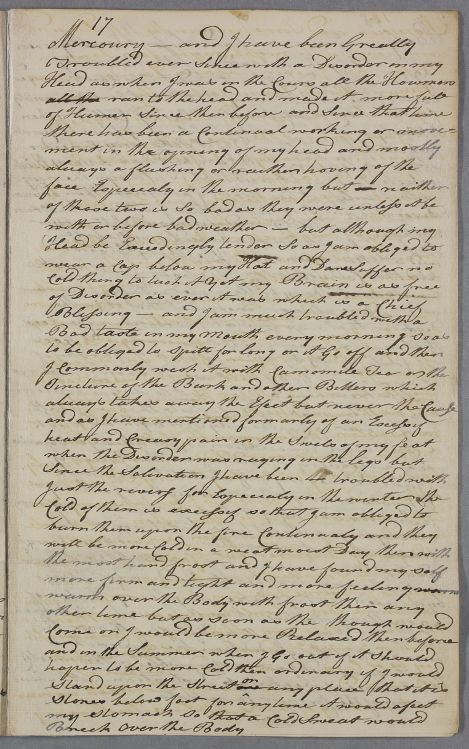 17
Mercoury — and I have been Greatly
Troubled ever Since with a Disorder in my
Head as when I was in the Cours all the Houmers
all the ran to the head and made it more full
of Humer Since then before and Since that time
there has been a Continual working or move-
ment in the opening of my head and mostly
always a flushing or raither hoving of the
face Especialy in the morning but — neaither
of those two is So bad as they were unless it be
with or before bad weather — but although my
Head be Exceedingly tender So as I am obliged to
wear a Cap below my Hat and Dare Siffer no
Cold thing to tuch it yet my Brain is as free
of Disorder as ever it was which is a Chief
Blessing — and I am much troubled with a
Bad taste in my Mouth every morning So as
to be obliged to Spitt for long or it Go off and then
I Commonly wesh it with Camomile Tea or the
Tincture of the Bark and other Bitters which
always takes away the Efect but never the Cause
and as I have mentioned formarly of an Excessif
heat and Creavy pain in the of my feat
when the Disorder was raging in the legs but
Since the Salivation I have been troubled with
Just the revers for Especialy in the winter the
Cold of them is excessif so that I am obliged to
burn them upon the fire Continualy and they
will be more Cold in a weat moist Day then with
the most hard frost and I have found my self
more firm and tight and more feeling warm
warm over the Body with frost then any
other time but as soon as the though would
Come on I would be more Relaxed then before
and in the Summer when I Go out if it Should
hapen to be more Cold then ordinary if I would
Stand upon the Street or on any place that it is
Stones below foot for any time it would afect
my Stomack so that a Cold Sweat would
Breck over the Body